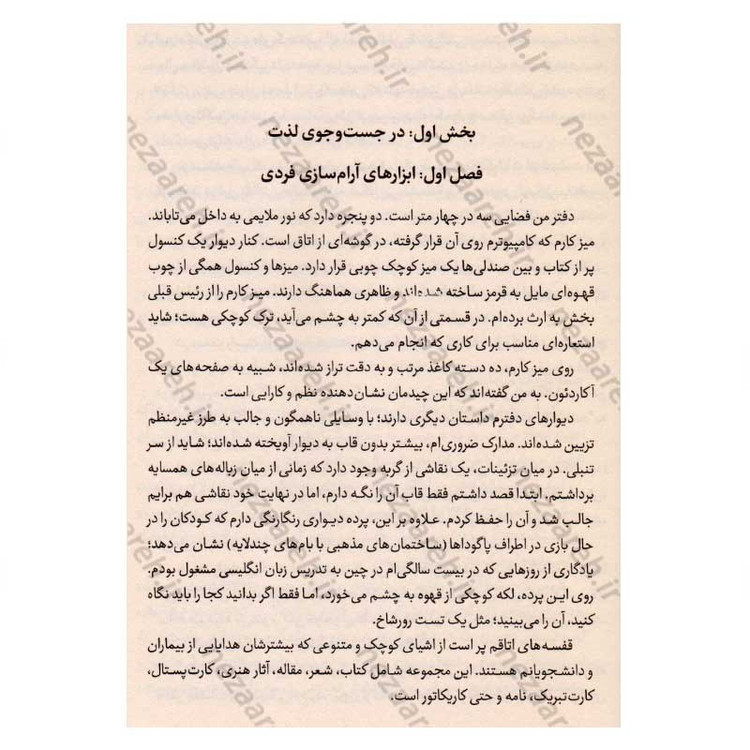 بخش اول: در جست‌وجوی لذت
فصل اول: ابزارهای آرام‌سازی فردی
دفتر من فضایی سه در چهار متر است. دو پنجره دارد که نور ملایمی به داخل می‌تاباند.
میز کارم که کامپیوترم روی آن قرار گرفته، در گوشه‌ای از اتاق است. کنار دیوار یک کنسول
پر از کتاب و بین صندلی‌ها یک میز کوچک چوبی قرار دارد. میزها و کنسول همگی از چوب
قهوه‌ای مایل به قرمز ساخته شده‌اند و ظاهری هماهنگ دارند. میز کارم را از رئیس قبلی
بخش به ارث برده‌ام. در قسمتی از آن که کمتر به چشم می‌آید، ترک کوچکی هست؛ شاید
استعاره‌ای مناسب برای کاری که انجام می‌دهم.
روی میز کارم، ده دسته کاغذ مرتب و به دقت تراز شده‌اند، شبیه به صفحه‌های یک
آکاردئون. به من گفته‌اند که این چیدمان نشان‌دهنده نظم و کارایی است.
دیوارهای دفترم داستان دیگری دارند؛ با وسایلی ناهمگون و جالب به طرز غیرمنظم
تزیین شده‌اند. مدارک ضروری‌ام، بیشتر بدون قاب به دیوار آویخته شده‌اند؛ شاید از سر
تنبلی. در میان تزئینات، یک نقاشی از گربه وجود دارد که زمانی از میان زباله‌های همسایه
برداشتم. ابتدا قصد داشتم فقط قاب آن را نگه دارم، اما در نهایت خود نقاشی هم برایم
جالب شد و آن را حفظ کردم. علاوه بر این، پرده دیواری رنگارنگی دارم که کودکان را در
حال بازی در اطراف پاگوداها (ساختمان‌های مذهبی با بام‌های چندلایه) نشان می‌دهد؛
یادگاری از روزهایی که در بیست سالگی‌ام در چین به تدریس زبان انگلیسی مشغول بودم.
روی این پرده، لکه کوچکی از قهوه به چشم می‌خورد، اما فقط اگر بدانید کجا را باید نگاه
کنید، آن را می‌بینید؛ مثل یک تست رورشاخ.
قفسه‌های اتاقم پر است از اشیای کوچک و متنوعی که بیشترشان هدایایی از بیماران
و دانشجویانم هستند. این مجموعه شامل کتاب، شعر، مقاله، آثار هنری، کارت‌پستال،
کارت‌تبریک، نامه و حتی کاریکاتور است.
nezaareh.ir